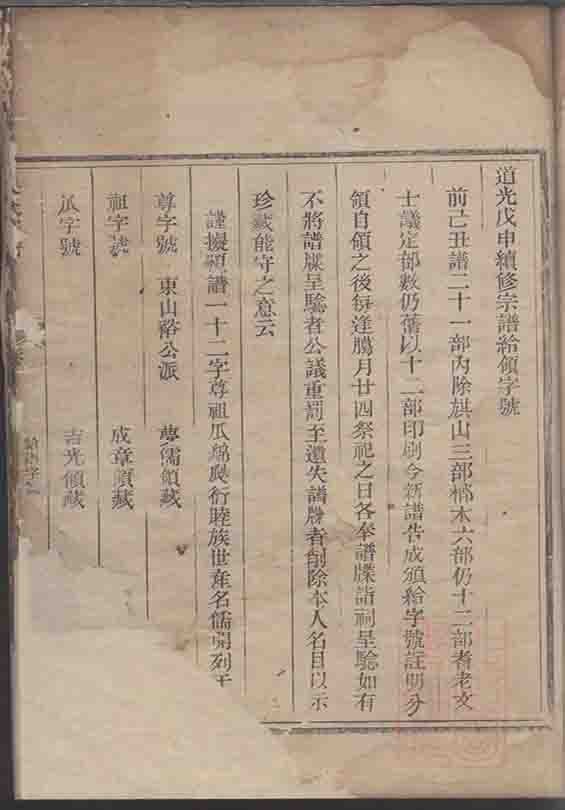 道光戊申續修宗譜給領字號
前己丑譜二十一部內除旗山三部楠木六部仍十二部耆老文
士議定部數仍舊以十二部印刷今新譜告成頒給字號註明分
領自領之後每逢臘月廿四祭祀之日各奉譜牒詣祠呈驗如有
不將譜牒呈驗者公議重罰至遺失譜牒者削除本人名目以示
珍藏能守之意云
謹擬領譜一十二字尊祖瓜綿爕衍睦族世產名儒開列于
尊字號 東山裕公派 夢儒領藏
祖字號 成章領藏
瓜字號 吉光領藏